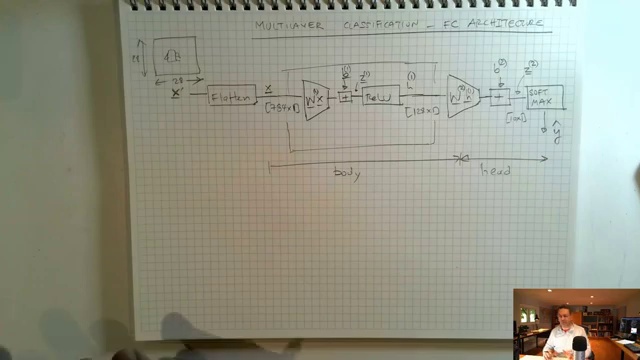 MULTILAYER CLASSIFICATION - FC ARCHITECTURE
28
28
x'
Flatten
x
[784x1]
W⁽¹⁾x
b⁽¹⁾
+
z⁽¹⁾
ReLU
h⁽¹⁾
[128x1]
W⁽²⁾h⁽¹⁾
b⁽²⁾
+
z⁽²⁾
SOFT
MAX
ŷ
body
head